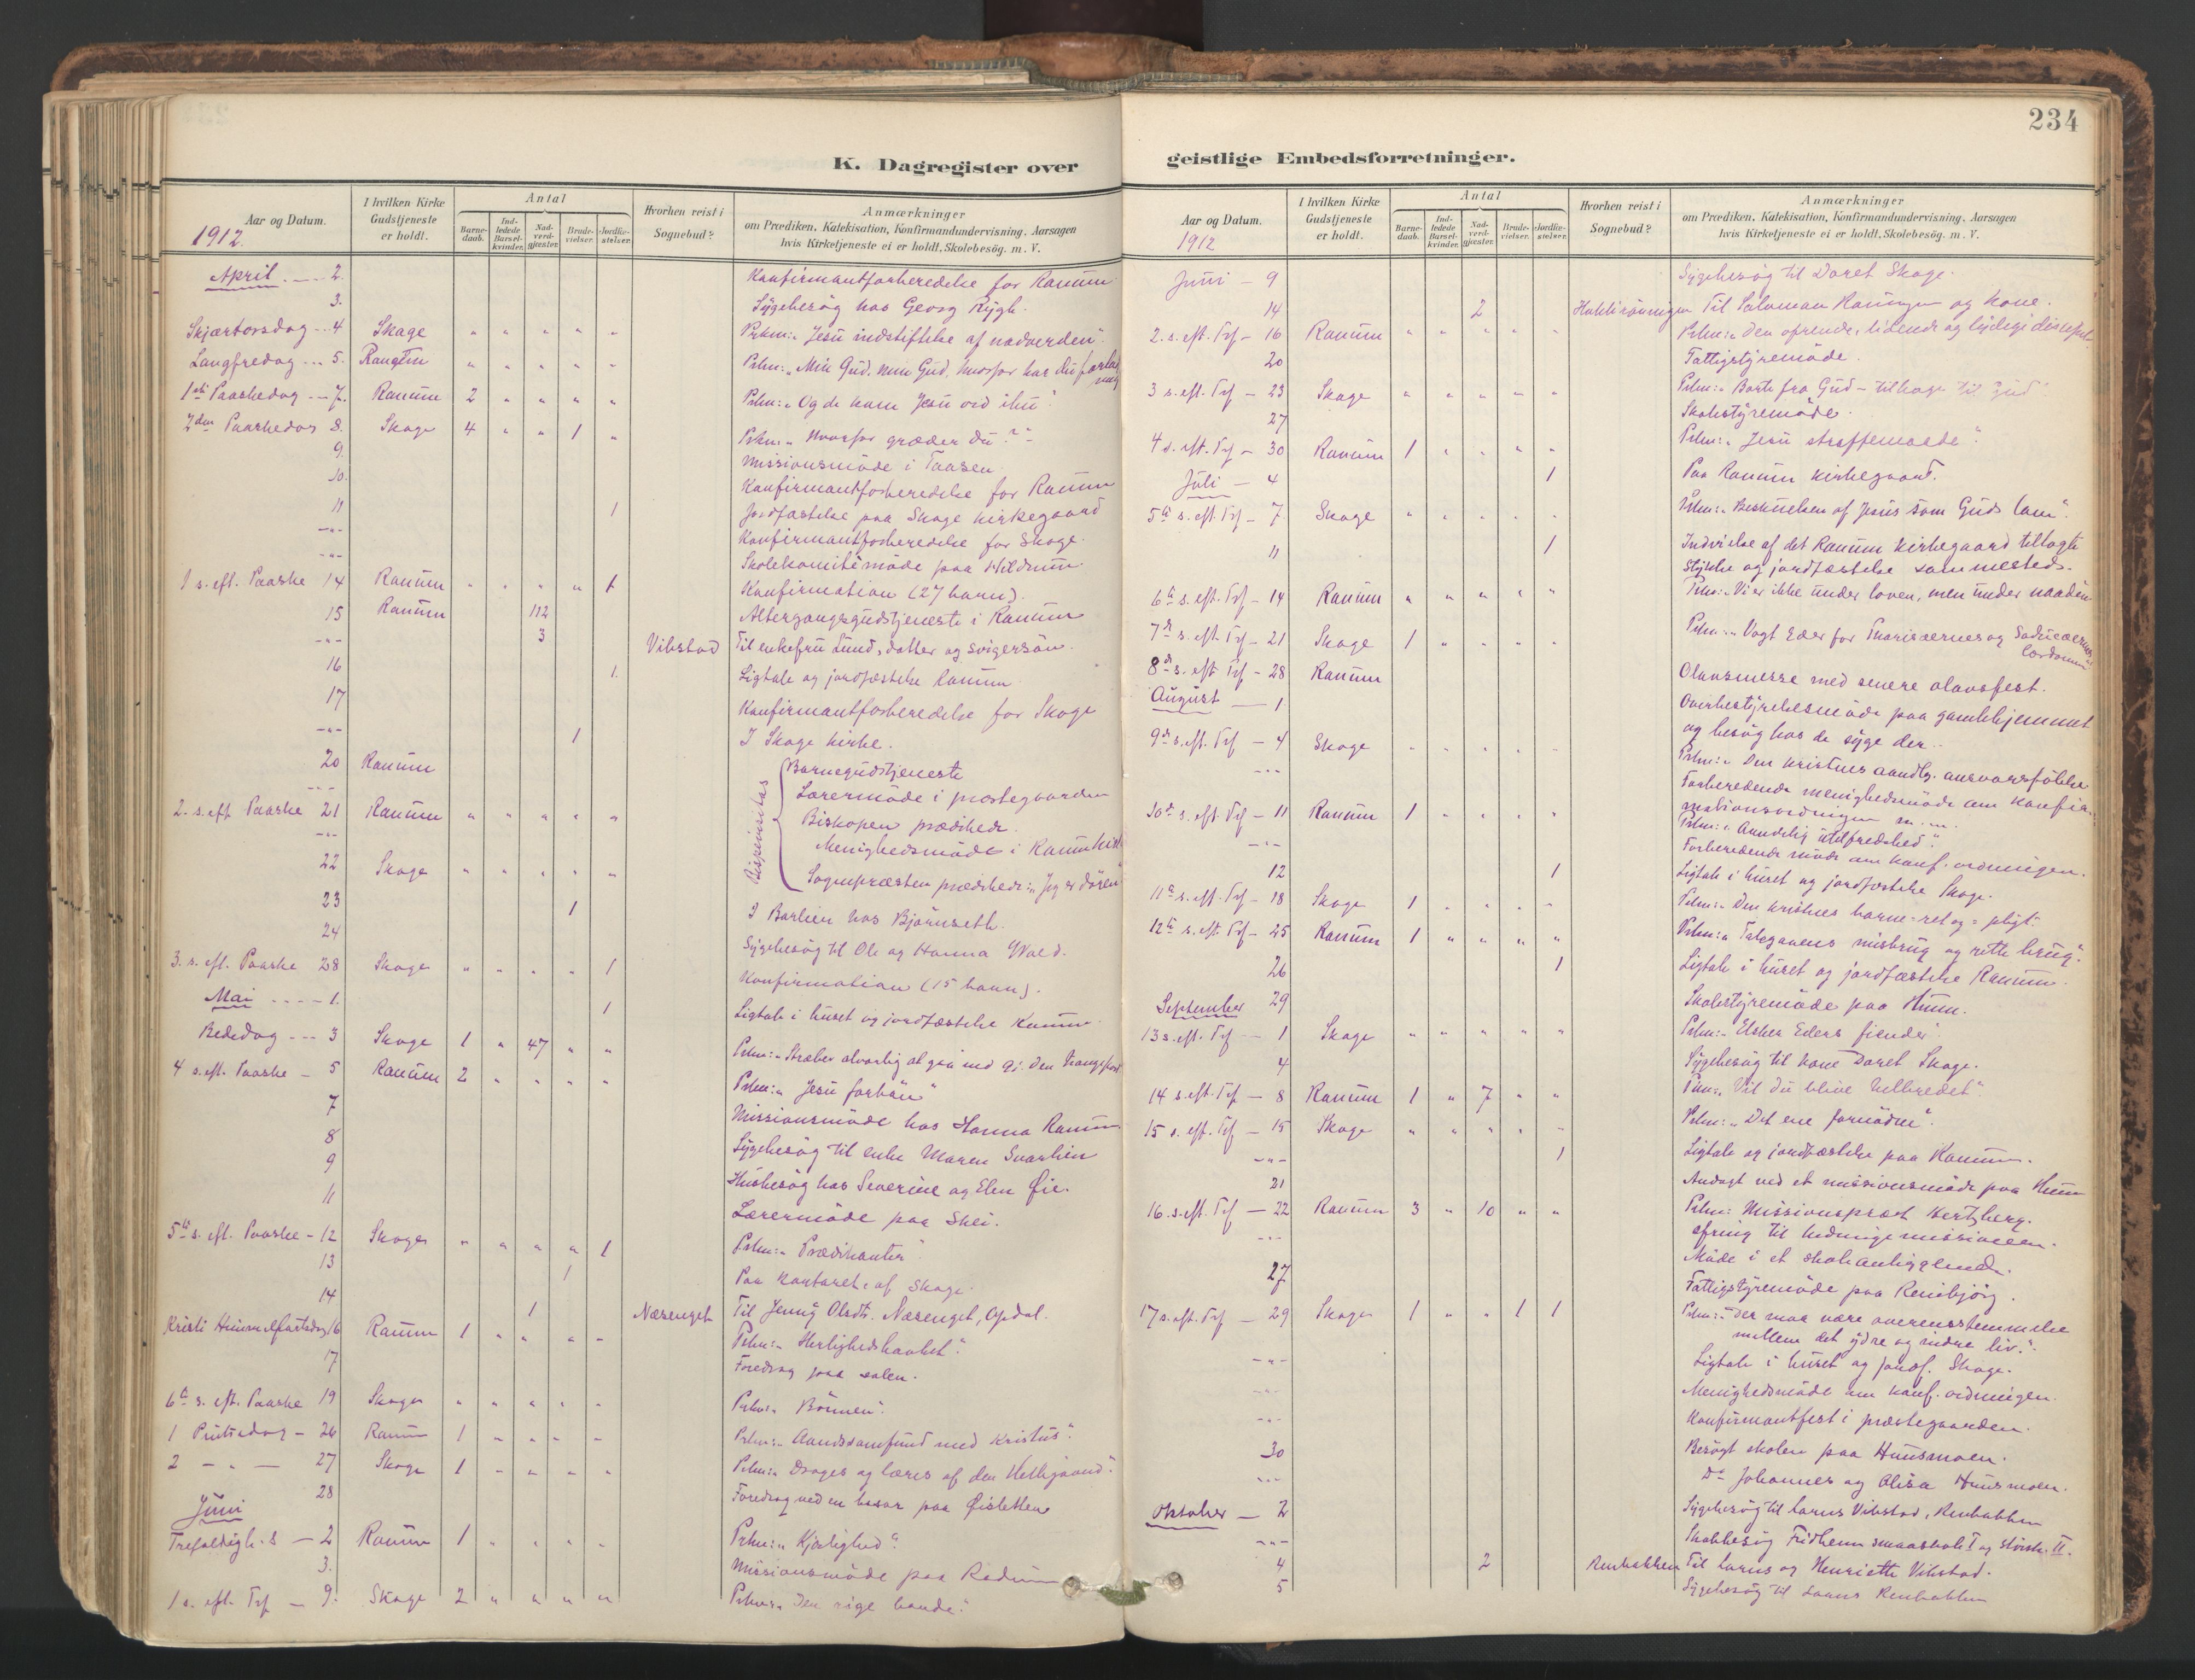 234
K. Dagregister over
geistlige Embedsforretninger.
Aar og Datum.
1912.
I hvilken Kirke Gudstjeneste er holdt.
Antal
Barne-daab.
Ind-ledede Barsel-kvinder.
Nad-verd-gjæster.
Brude-vielser.
Jordfæ-stelser.
Hvorhen reist i Sognebud?
Anmærkninger
om Prædiken, Katekisation, Konfirmandundervisning. Aarsagen
hvis Kirketjeneste ei er holdt, Skolebesög. m. V.
April 2. Konfirmantforberedelse for Ranum
3. Sygebesøg hos Georg Rygh.
Skjærtorsdag 4 Skage " " " " " Prkn: „Jesu indstiftelse af nadverden".
Langfredag 5. Ranum " " " " " Prkn: „Min Gud, min Gud, hvorfor har du forladt mig
1ste Paaskedag 7. Ranum 2 " " " " Prkn: „Og de kom Jesu ord ihu".
2den Paaskedag 8. Skage 4 " " 1 " Prkn: „Hvorfor græder du?"
9. Missionsmøde i Taasen.
10. Konfirmantforberedelse for Ranum
11 1 Jordfæstelse paa Skage kirkegaard
-"- Konfirmantforberedelse for Skage.
-"- Skolekomitémøde paa Hildrum.
1 s. eft. Paaske 14 Ranum " " " " 1 Konfirmation (27 barn).
15 Ranum 112 Altergangsgudstjeneste i Ranum
-"- 3 Vibstad Til enkefru Lund, datter og svigersøn.
16 1. Ligtale og jordfæstelse Ranum.
17 Konfirmantforberedelse for Skage
-"- 1 I Skage kirke.
20 Ranum Barnegudstjeneste
--- Lærermøde i præstegaarden
2. s. eft Paaske 21 Ranum " " " " " Biskopen prædikede.
-"- Menighedsmøde i Ranum kirke
22 Skage " " " " " Sognepræsten prædikede: „Jeg er døren"
Bispevisitas
23 1 I Barlien hos Bjørnseth.
24 Sygebesøg til Ole og Hanna Wald.
3. s. eft. Paaske 28 Skage " " " " 1 Konfirmation (15 barn).
Mai 1. 1 Ligtale i huset og jordfæstelse Ranum.
Bededag 3 Skage 1 " 47 " " Prkn: „Stræber alvorlig at gaa ind gj. den trange port
4 s. eft. Paaske 5 Ranum 2 " " " " Prkn: „Jesu forbøn"
7 Missionsmøde hos Hanna Ranum
8 Sygebesøg til enke Maren Svarlien
9 Husbesøg hos Severine og Elen Øie.
11 Lærermøde paa Skei.
5te s. eft. Paaske 12 Skage " " " " 1 Prkn: „Prædikanter"
13 1 Paa kontoret af Skage.
14 1 Næsenget Til Jenny Olsdt. Næsenget, Opdal.
Kristi Himmelfartsdag 16 Ranum 1 " " " " Prkn: „Herlighedshaabet".
17 Foredrag paa salen.
6te s. eft. Paaske 19 Skage " " " " " Prkn: „Bønnen".
1 Pintsedag 26 Ranum 1 " " " " Prkn: „Aandssamfund med Kristus".
2 - " - 27 Skage 1 " " " " Prkn: „Drages og læres af den Helligaand".
28 Foredrag ved en basar paa Øisletten
Juni
Trefoldigh. s 2 Ranum 1 " " " " Prkn: „Kjærlighed".
3. Missionsmøde paa
1 s. eft. Tref 9. Skage 2 " " " " Prkn: „Den rige bonde".
Aar og Datum.
1912
I hvilken Kirke Gudstjeneste er holdt.
Antal
Barne-daab.
Ind-ledede Barsel-kvinder.
Nad-verd-gjæster.
Brude-vielser.
Jordfæ-stelser.
Hvorhen reist i Sognebud?
Anmærkninger
om Prædiken, Katekisation, Konfirmandundervisning. Aarsagen
hvis Kirketjeneste ei er holdt, Skolebesög. m. V.
Juni 9 Sygebesøg til Doret Skage.
14 2 Til Salomon og kone.
2. s. eft. Trf 16 Ranum " " " " " Prkn: „Den ofrende, lidende og lydige discipel
20 Fattigstyremøde.
3 s. eft. Trf 23 Skage " " " " " Prkn: „Borte fra Gud - tilbage til Gud"
27 Skolestyremøde.
4 s. eft. Trf 30 Ranum 1 " " " " Prkn: „Jesu straffemaade".
Juli 4 1 Paa Ranum kirkegaard.
5te s. eft. Trf 7 Skage " " " " " Prkn: „Beskuelsen af Jesus som Guds lam".
11 1 Indvielse af det Ranum kirkegaard tillagte
stykke og jordfæstelse sammesteds.
6te s. eft. Trf 14 Ranum " " " " " Prkn: „Vi er ikke under loven, men under naaden
7de s. eft. Trf 21 Skage 1 " " " " Prkn: „Vogt Eder for Fariseernes og Saduceernes lærdom"
8de s. eft Trf 28 Ranum Olavsmesse med senere olavsfest.
August 1 Overbestyrelsesmøde paa gamlehjemmet
og besøg hos de syge der.
9de s. eft. Trf 4 Skage " " " " " Prkn: „Den kristnes aandlg. ansvarsfølelse
--- Forberedende menighedsmøde om konfir-
mationsordningen m. m.
10de s. eft. Trf 11 Ranum 1 " " " " Prkn: „Aandelig utilfredshed".
-"- Forberedende møde om konf. ordningen.
12 1 Ligtale i huset og jordfæstelse Skage.
11te s. eft. Trf 18 Skage 1 " " " Prkn: „Den kristnes barne=ret og=pligt.
12te s. eft. Trf 25 Ranum 1 " " " " Prkn: „Talegavens misbrug og rette brug".
26 1 Ligtale i huset og jordfæstelse Ranum.
29 Skolestyremøde paa Hunn.
September
13 s. eft. Trf 1 Skage " " " " " Prkn: „Elsker Eders fiender"
4 Sygebesøg til kone Doret Skage.
14 s. eft. Trf 8 Ranum 1 " 7 " " Prkn: „Vil du blive helbredet".
15 s. eft. Trf 15 Skage " " " " " Prkn: „Det ene fornødne".
-"- 1 Ligtale og jordfæstelse paa Ranum.
21 Andagt ved et missionsmøde paa Hunn
16. s. eft. Trf 22 Ranum 3 " 10 " " Prkn: Missionsprest Kertzberg.
ofring til hedningemissionen.
--- Møde i et skoleanliggende.
27 Fattigstyremøde paa Reinbjørg.
17 s. eft. Trf 29 Skage 1 " " 1 1 Prkn: „Der maa være overensstemmelse
mellem det ydre og indre liv".
-"- Ligtale i huset og jordf. Skage.
-"- Menighedsmøde om konf. ordningen.
-"- Konfirmantfest i præstegaarden.
30 Besøgt skolen paa Hunsmoen.
-"- Do Johannes og Olisa Hunsmoen.
Oktober 2 Sygebesøg til Larus Vibstad, Renbakken
-"- Skolebesøg Fridhem smaaskole I og storsk. II.
4 2 Renbakken Til Larus og Henriette Vibstad.
5 Sygebesøg til Larus Renbakken